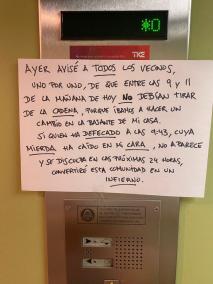 0
TKE
AYER AVISÉ A TODOS LOS VECINOS,
UNO POR UNO, DE QUE ENTRE LAS 9 Y 11
DE LA MAÑANA DE HOY NO DEBÍAN TIRAR
DE LA CADENA, PORQUE ÍBAMOS A HACER UN
CAMBIO EN LA BAJANTE DE MI CASA.
SI QUIEN HA DEFECADO A LAS 9:43, CUYA
MIERDA HA CAÍDO EN MI CARA, NO APARECE
Y SE DISCULPA EN LAS PRÓXIMAS 24 HORAS,
CONVERTIRÉ ESTA COMUNIDAD EN UN
INFIERNO.